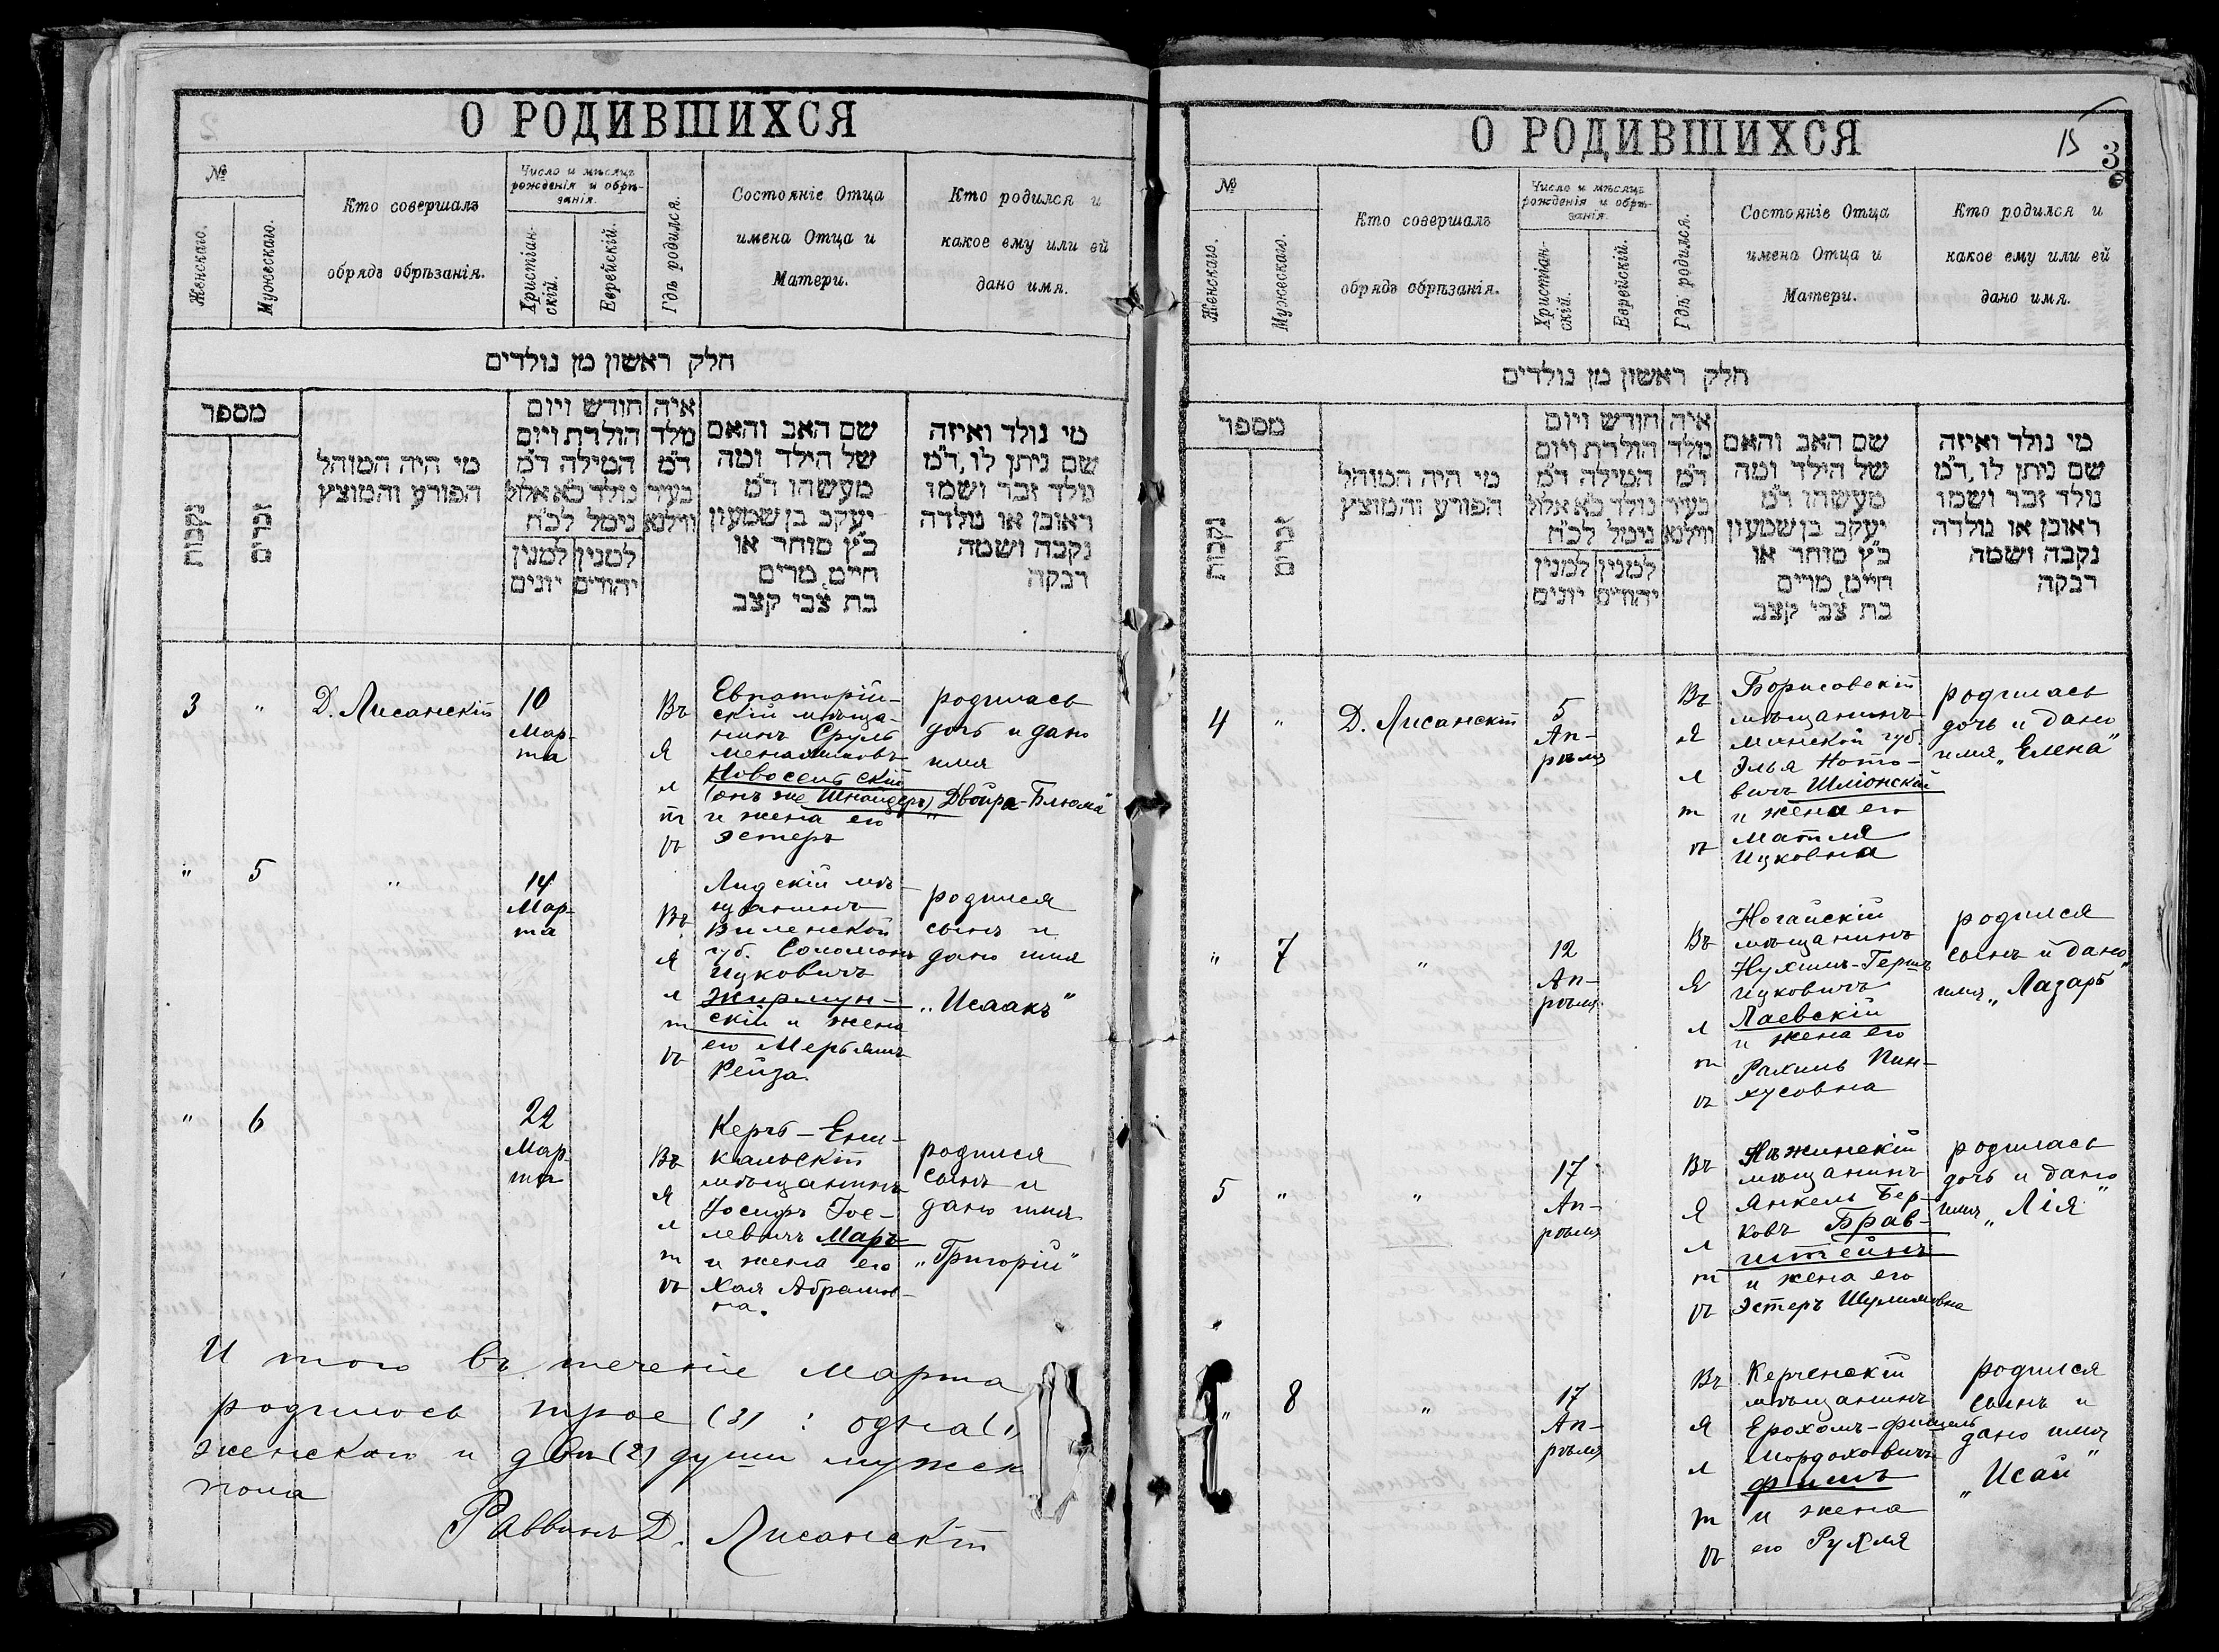 О РОДИВШИХСЯ
№
Женскаго.
Мужескаго.
Кто совершалъ
обрядъ обрѣзанія.
Число и мѣсяцъ
рожденія и обрѣ-
занія.
Христіан-
скій.
Еврейскій.
Гдѣ родился.
Состояніе Отца
имена Отца и
Матери.
Кто родился и
какое ему или ей
дано имя.
חלק ראשון מן נולדים
מספר
נקבות
זכרים
מי היה המוהל
הפורע והמוצץ
חודש ויום
הולדת ויום
המילה ד״מ
נולד כ״א אלול
נימל לכ״ח
למנין
יהודים
למנין
יונים
איה
מלד
ד״מ
בעיר
ווילנא
שם האב והאם
של הילד ומה
מעשהו ד״מ
יעקב בן שמעון
כ״ץ סוחר או
חייט, מרים
בת צבי קצב
מי נולד ואיזה
שם ניתן לו, ד״מ
נולד זכר ושמו
ראובן או נולדה
נקבה ושמה
רבקה
3
"
Д. Лисанскій
10
Мар-
та
Въ
Я
л
т
ѣ
Евпаторій-
скій мѣща-
нинъ Сруль
Менахимовъ
Новосельскій
(онъ же Шнайдеръ)
и жена его
Эстеръ
родилась
дочь и дано
имя
„Двойра-Блюма"
"
5
"
14
Мар-
та
Въ
Я
л
т
ѣ
Лидскій мѣ-
щанинъ
Виленской
губ. Соломонъ
Ицковичъ
Жирмун-
скій и жена
его Мерьямъ
Рейза.
родился
сынъ и
дано имя
„Исаакъ"
"
6
22
Мар-
та
Въ
Я
л
т
ѣ
Керчь-Ени-
кальскій
мѣщанинъ
Іосифъ Іое-
левичъ Маръ
и жена его
Хая Абрамов-
на.
родился
сынъ и
дано имя
„Григорій"
И того въ теченіе Марта
родилось трое (3) : одна (1)
женскаго и двѣ (2) души мужск
пола
Раввинъ Д. Лисанскій
О РОДИВШИХСЯ
3
№
Женскаго.
Мужескаго.
Кто совершалъ
обрядъ обрѣзанія.
Число и мѣсяцъ
рожденія и обрѣ-
занія.
Христіан-
скій.
Еврейскій.
Гдѣ родился.
Состояніе Отца
имена Отца и
Матери.
Кто родился и
какое ему или ей
дано имя.
חלק ראשון מן נולדים
מספר
נקבות
זכרים
מי היה המוהל
הפורע והמוצץ
חודש ויום
הולדת ויום
המילה ד״מ
נולד כ״א אלול
נימל לכ״ח
למנין
יהודים
למנין
יונים
איה
מלד
ד״מ
בעיר
ווילנא
שם האב והאם
של הילד ומה
מעשהו ד״מ
יעקב בן שמעון
כ״ץ סוחר או
חייט, מרים
בת צבי קצב
מי נולד ואיזה
שם ניתן לו, ד״מ
נולד זכר ושמו
ראובן או נולדה
נקבה ושמה
רבקה
4
"
Д. Лисанскій
5
Ап-
рѣля
Въ
Я
л
т
ѣ
Борисовскій
мѣщанинъ
Минской губ.
Элья Ното-
вичъ Шліонскій
и жена его
Матля
Ицковна
родилась
дочь и дано
имя „Елена"
"
7
"
12
Ап-
рѣля
Въ
Я
л
т
ѣ
Ногайскій
мѣщанинъ
Нухимъ-Гершъ
Ицковичъ
Лаевскій
и жена его
Рахиль Пин-
хусовна
родился
сынъ и дано
имя „Лазарь"
5
"
"
17
Ап-
рѣля
Въ
Я
л
т
ѣ
Нѣжинскій
мѣщанинъ
Янкель Бер-
ковъ Брав-
штейнъ
и жена его
Эстеръ Шулимовна
родилась
дочь и дано
имя „Лія"
"
8
"
17
Ап-
рѣля
Въ
Я
л
т
ѣ
Керченскій
мѣщанинъ
Ерохомъ-Фишель
Мордоховичъ
Фишъ
и жена
его Рухля
родился
сынъ и
дано имя
„Исай"